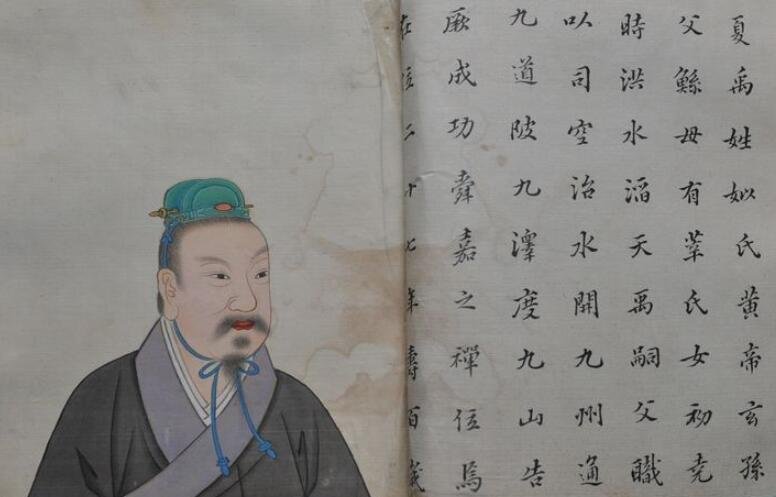 夏禹姓姒氏黃帝玄孫
父鯀母有莘氏女初堯
時洪水滔天禹嗣父職
以司空治水開九州通
九道陂九澤度九山告
厥成功舜嘉之禪位焉
在位二十七年壽百歲